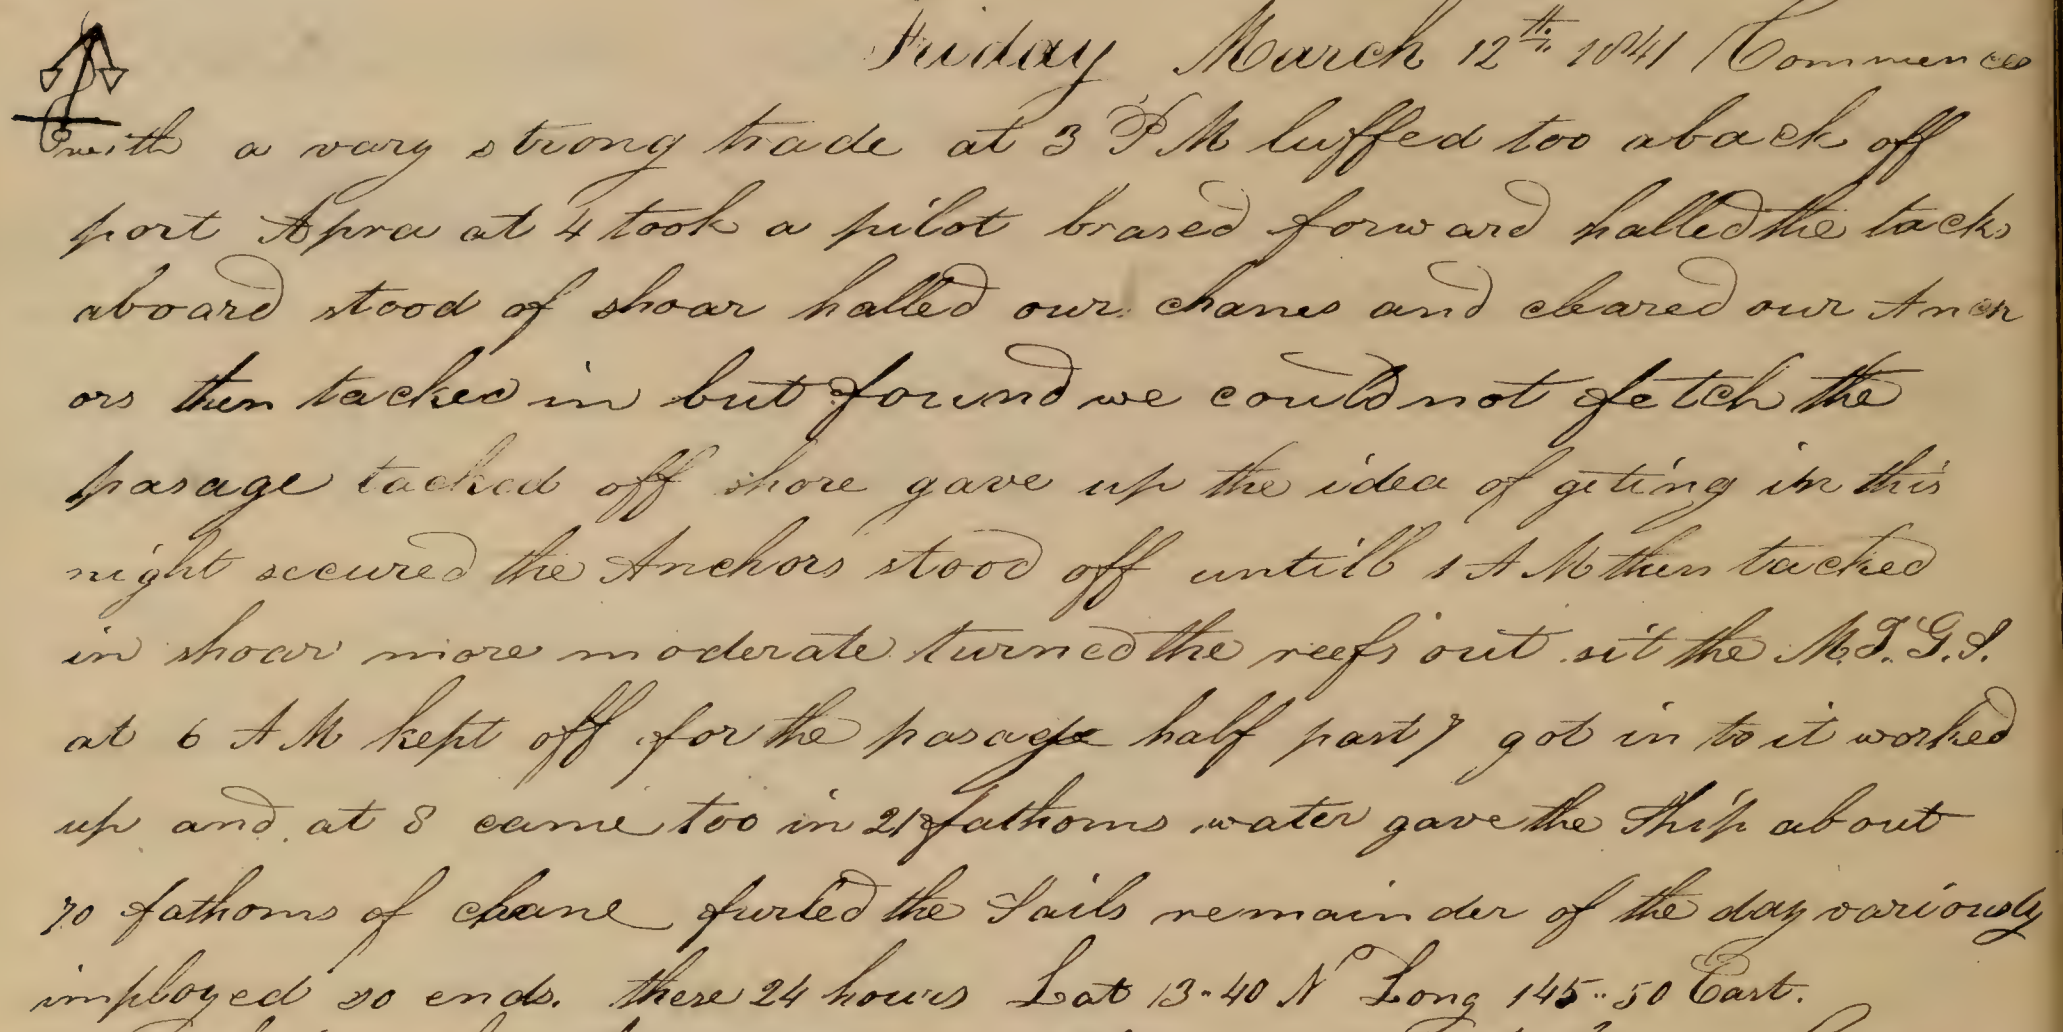 Friday March 12th 1841 Commences
with a vary strong trade at 3 P M luffed too aback off
port Apra at 4 took a pilot brased forward halled the tacks
aboard stood of shoar halled our chanes and cleared our Anch
ors then tacked in but found we could not fetch the
pasage tacked off shore gave up the idea of geting in this
night secured the Anchors stood off untill 1 A M then tacked
in shoar more moderate turned the reefs out sit the M.T.G.S.
at 6 A M kept off for the pasage half past 7 got in to it worked
up and at 8 came too in 21 fathoms water gave the Ship about
70 fathoms of chane furled the Sails remainder of the day variously
imployed so ends. these 24 hours Lat 13-40 N Long 145-50 East.